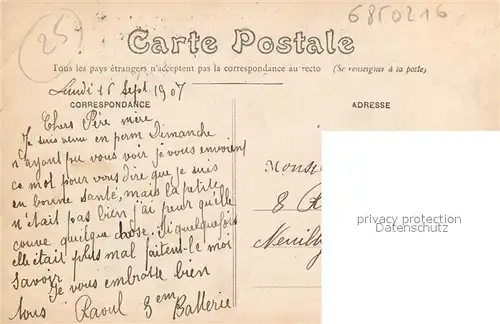 25
6850216
Carte Postale
Tous les pays étrangers n'acceptent pas la correspondance au recto (Se renseigner à la poste)
Lundi 16 Sept 1907
CORRESPONDANCE
ADRESSE
Chers Père mère
Je suis venu en perm Dimanche
n'ayant pu vous voir je vous envoient
ce mot pour vous dire que je suis
en bonne santé, mais la petite
n'était pas bien j'ai peur qu'elle
couve quelque chose, si quelquefois
elle était plus mal faitent-le moi
savoir
Je vous embrasse bien
tous Raoul 3em Batterie
Monsi
8
Neuilly
privacy protection